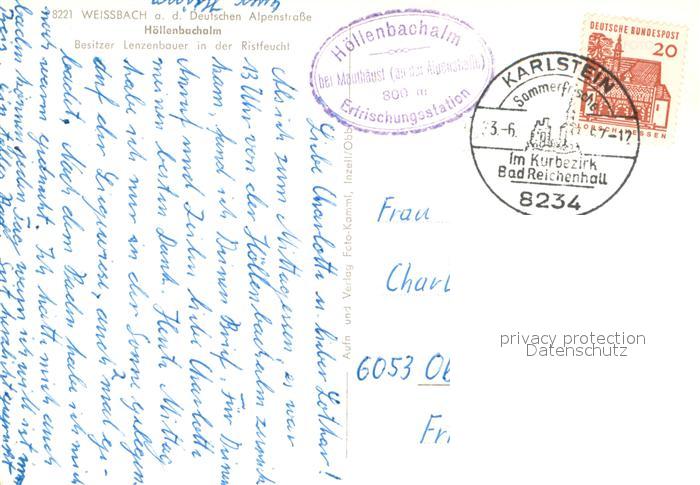 8221 WEISSBACH a. d. Deutschen Alpenstraße
Höllenbachalm
Besitzer Lenzenbauer in der Ristfeucht
Höllenbachalm
bei Mauthäusl (an der Alpenstraße)
800 m
Erfrischungsstation
DEUTSCHE BUNDESPOST
20
KARLSTEIN
Sommerfrische
3.-6.
-12
Im Kurbezirk
Bad Reichenhall
8234
Aufn und Verlag Foto-Kamml, Inzell/Obb
Liebe Charlotte u. lieber Lothar!
Als ich zum Mittagessen, es war
13 Uhr von der Höllenbachalm zurück
kam, fand ich Deinen Brief, für Deinen
Anruf und Zeilen liebe Charlotte
meinen besten Dank. Heute Mittag
habe ich nur in der Sonne gelegen
auf der Liegewiese, auch 2 mal ge-
badet. Nach dem Baden habe ich mich
noch warm geduscht. Ich hätt mich auch
baden können, jeden Tag, wegen
Frau
Charl
6053 Ob
Fr
privacy protection
Datenschutz